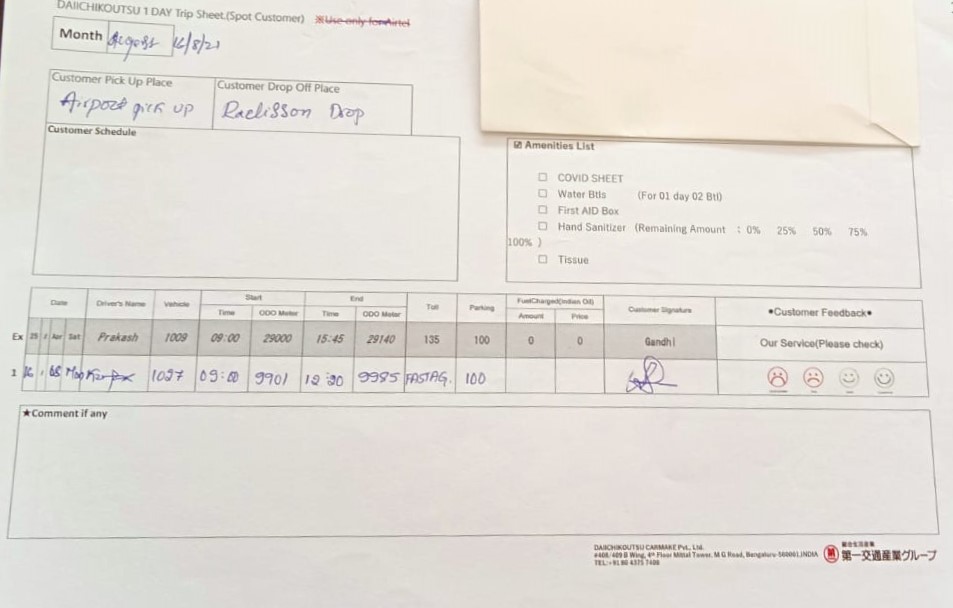 DAIICHIKOUTSU 1 DAY Trip Sheet.(Spot Customer) ※Use only for Airtel
Month August 16/8/21
Customer Pick Up Place Customer Drop Off Place
Airport pick up Raelisson Drop
Customer Schedule
☑ Amenities List
☐ COVID SHEET
☐ Water Btls (For 01 day 02 Btl)
☐ First AID Box
☐ Hand Sanitizer (Remaining Amount : 0% 25% 50% 75%
100% )
☐ Tissue
Date Driver's Name Vehicle Start End Toll Parking FuelCharged(Indian Oil) Customer Signature •Customer Feedback•
Time ODO Meter Time ODO Meter Amount Price
Ex 25 / Apr Sat Prakash 1009 09:00 29000 15:45 29140 135 100 0 0 Gandhi Our Service(Please check)
1 16 / 08 Mon 1027 09:00 9901 12:30 9985 FASTAG. 100
★Comment if any
DAIICHIKOUTSU CARMAKE Pvt., Ltd.
#408/409 B Wing, 4th Floor Mittal Tower, M G Road, Bengaluru-560001,INDIA
TEL:+91 80 4375 7488
総合生活産業
第一交通産業グループ